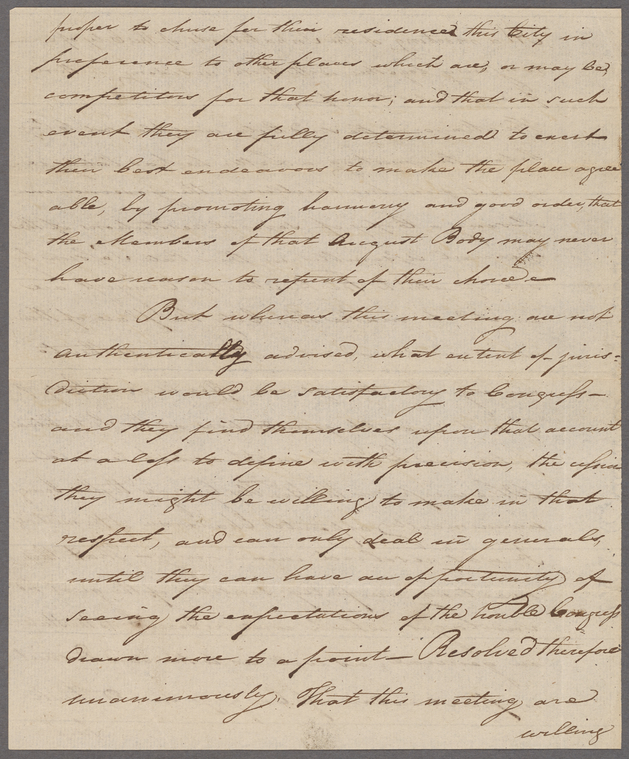 proper to chuse for their residence this City in
preference to other places which are, or may be,
competitors for that honor; and that in such
event they are fully determined to exert
their best endeavors to make the place agree
able, by promoting harmony and good order, that
the Members of that August Body may never
have reason to repent of their choice
But whereas this meeting are not
authentically advised, what extent of juris-
diction would be satisfactory to Congress-
and they find themselves upon that account
at a loss to define with precision, the
they might be willing to make in that
respect, and can only deal in generals,
until they can have an opportunity of
seeing the expectations of the honble Congress
drawn more to a point- Resolved therefore
unanimously, That this meeting are
willing